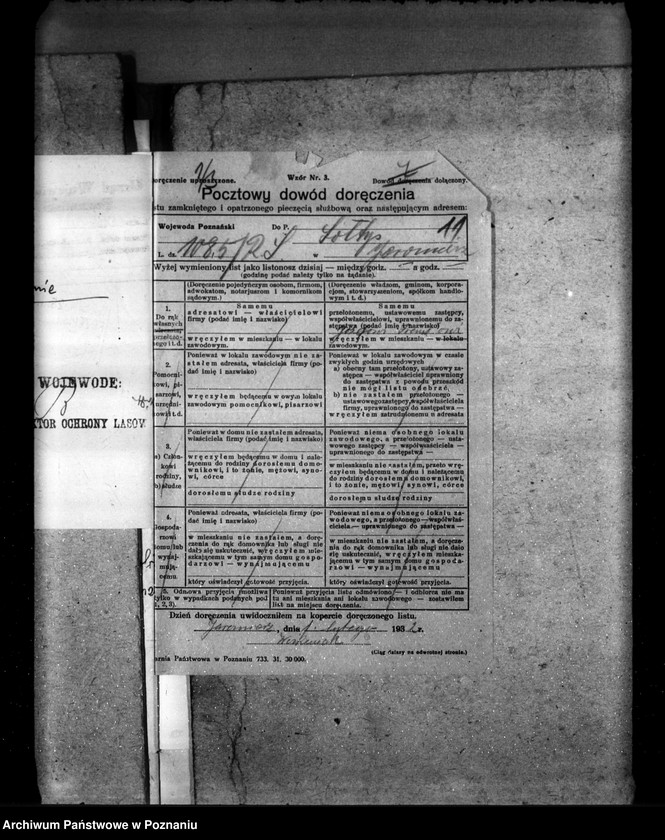 nie
WOJEWODĘ:
KTOR OCHRONY LASÓW
oręczenie uproszczone.
Wzór Nr. 3.
Dowód doręczenia dołączony.
Pocztowy dowód doręczenia
stu zamkniętego i opatrzonego pieczęcią służbową oraz następującym adresem:
Wojewoda Poznański
Do P. Sołtys
11
L. dz. 1085/
w
Wyżej wymieniony list jako listonosz dzisiaj — między godz. — a godz.
(godzinę podać należy tylko na żądanie).
(Doręczenie pojedyńczym osobom, firmom, adwokatom, notarjuszom i komornikom sądowym.)
(Doręczenie władzom, gminom, korporacjom, stowarzyszeniom, spółkom handlowym i t. d.)
1.
Do rąk
własnych
i t.d.
Samemu
adresatowi — właścicielowi
firmy (podać imię i nazwisko)
wręczyłem w mieszkaniu — w lokalu
zawodowym.
Samemu
przełożonemu, ustawowemu zastępcy,
współwłaścicielowi, uprawnionemu do zastępstwa (podać imię i nazwisko)
wręczyłem w mieszkaniu — w lokalu
zawodowym.
2.
Pomocnikowi, pisarzowi, urzędnikowi i t.d.
Ponieważ w lokalu zawodowym nie zastałem adresata, właściciela firmy (podać imię i nazwisko)
wręczyłem będącemu w owym lokalu
zawodowym pomocnikowi, pisarzowi
Ponieważ w lokalu zawodowym w czasie
zwykłych godzin urzędowych
a) obecny tam przełożony, ustawowy zastępca — współwłaściciel uprawniony
do zastępstwa z powodu przeszkód
nie mógł listu odebrać.
b) nie zastałem przełożonego —
ustawowego zastępcy, współwłaściciela
firmy, uprawnionego do zastępstwa —
wręczyłem zatrudnionemu u adresata
3.
a) Członkowi
rodziny,
b) służbie
Ponieważ w domu nie zastałem adresata,
właściciela firmy (podać imię i nazwisko)
wręczyłem będącemu w domu i należącemu do rodziny dorosłemu domownikowi, i to żonie, mężowi, synowi, córce
dorosłemu słudze rodziny
Ponieważ niema osobnego lokalu
zawodowego, a przełożonego — ustawowego zastępcy — współwłaściciela —
uprawnionego do zastępstwa —
w mieszkaniu nie zastałem, przeto wręczyłem będącemu w domu i należącemu
do rodziny dorosłemu domownikowi,
i to żonie, mężowi, synowi, córce
dorosłemu słudze rodziny
4.
Gospodarzowi
domu lub
wynajmującemu
Ponieważ adresata, właściciela firmy (podać imię i nazwisko)
w mieszkaniu nie zastałem, a doręczenia do rąk domownika lub sługi nie
dały się uskutecznić, wręczyłem mieszkającemu w tym samym domu gospodarzowi — wynajmującemu
który oświadczył gotowość przyjęcia.
Ponieważ niema osobnego lokalu zawodowego, a przełożonego — współwłaściciela — uprawnionego do zastępstwa —
w mieszkaniu nie zastałem, a doręczenia do rąk domownika lub sługi nie dało
się uskutecznić, wręczyłem mieszkającemu w tym samym domu gospodarzowi — wynajmującemu
który oświadczył gotowość przyjęcia.
5. Odmowa przyjęcia (możliwa
tylko w wypadkach podanych pod
1, 2, 3).
Ponieważ przyjęcia listu odmówiono — i odbiorca nie ma
tu ani mieszkania ani lokalu zawodowego — zostawiłem
list na miejscu doręczenia.
Dzień doręczenia uwidoczniłem na kopercie doręczonego listu.
dnia 1. lutego 1932 r.
(Ciąg dalszy na odwrotnej stronie.)
arnia Państwowa w Poznaniu 733. 31. 30 000.
Archiwum Państwowe w Poznaniu